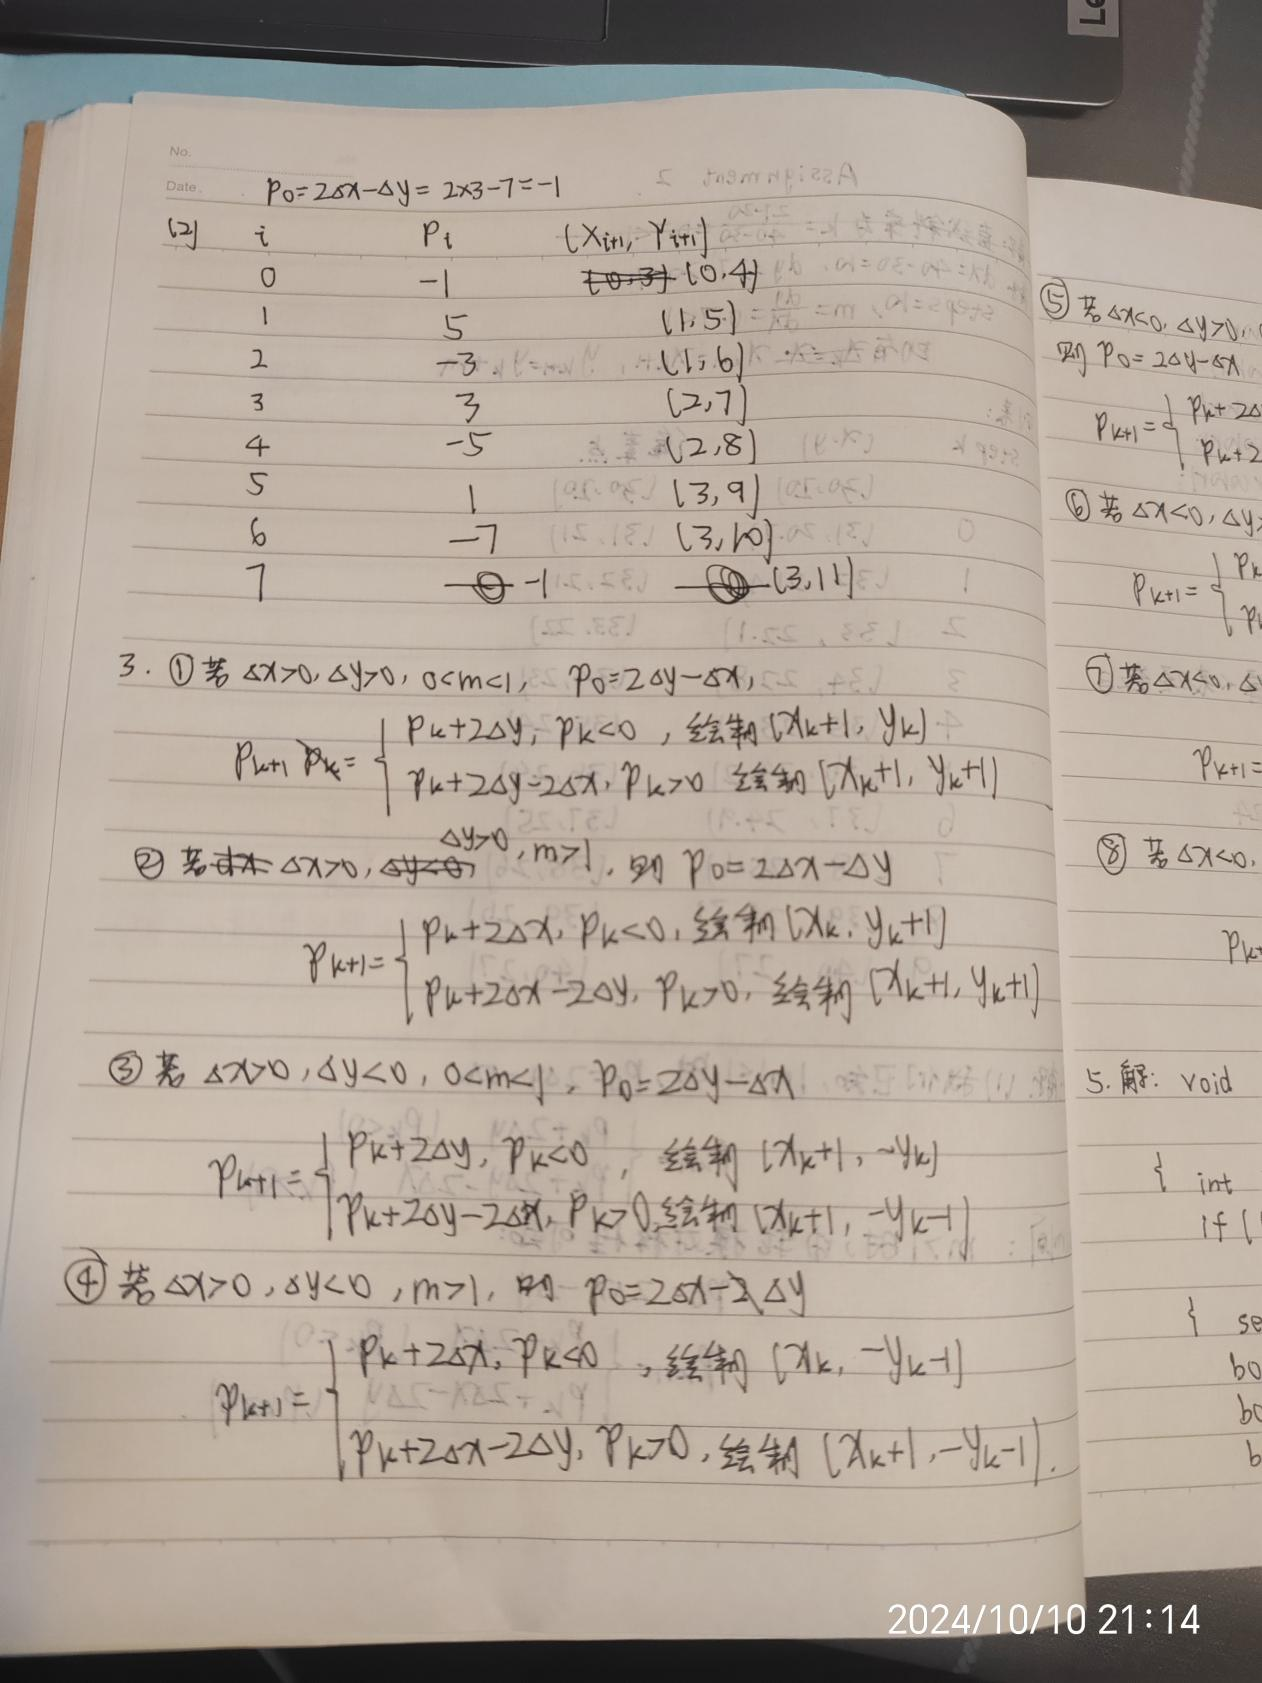 No.
Date.
P₀=2Δx-Δy= 2×3-7=-1
(2) i Pi (Xi+1, Yi+1)
0 -1 (0,3) (0,4)
1 5 (1,5)
2 -3 (1,6)
3 3 (2,7)
4 -5 (2,8)
5 1 (3,9)
6 -7 (3,10)
7 -1 (3,11)
3. ①若 Δx>0, Δy>0, 0<m<1, P₀=2Δy-Δx,
Pk+2Δy, Pk<0, 绘制(Xk+1, yk)
Pk+1 Pk= {
Pk+2Δy-2Δx, Pk>0 绘制(Xk+1, yk+1)
Δy>0
②若 Δx>0, Δy<0, m>1, 则 P₀=2Δx-Δy
Pk+2Δx, Pk<0, 绘制(Xk, yk+1)
Pk+1= {
Pk+2Δx-2Δy, Pk>0, 绘制(Xk+1, yk+1)
③若 Δx>0, Δy<0, 0<m<1, P₀=2Δy-Δx
Pk+2Δy, Pk<0, 绘制(Xk+1, -yk)
Pk+1= {
Pk+2Δy-2Δx, Pk>0, 绘制(Xk+1, -yk-1)
④若 Δx>0, Δy<0, m>1, 则 P₀=2Δx-2Δy
Pk+2Δx, Pk<0, 绘制(Xk, -yk-1)
Pk+1= {
Pk+2Δx-2Δy, Pk>0, 绘制(Xk+1, -yk-1).
⑤若 Δx<0, Δy>0,
则 P₀=2Δy-Δx
Pk+2Δ
Pk+1= {
Pk+2
⑥若 Δx<0, Δy>
Pk
Pk+1= {
⑦若 Δx<0, Δ
Pk+1=
⑧若 Δx<0,
Pk+
5. 解: void
{ int
if (
{ se
bo
bo
b
2024/10/10 21:14